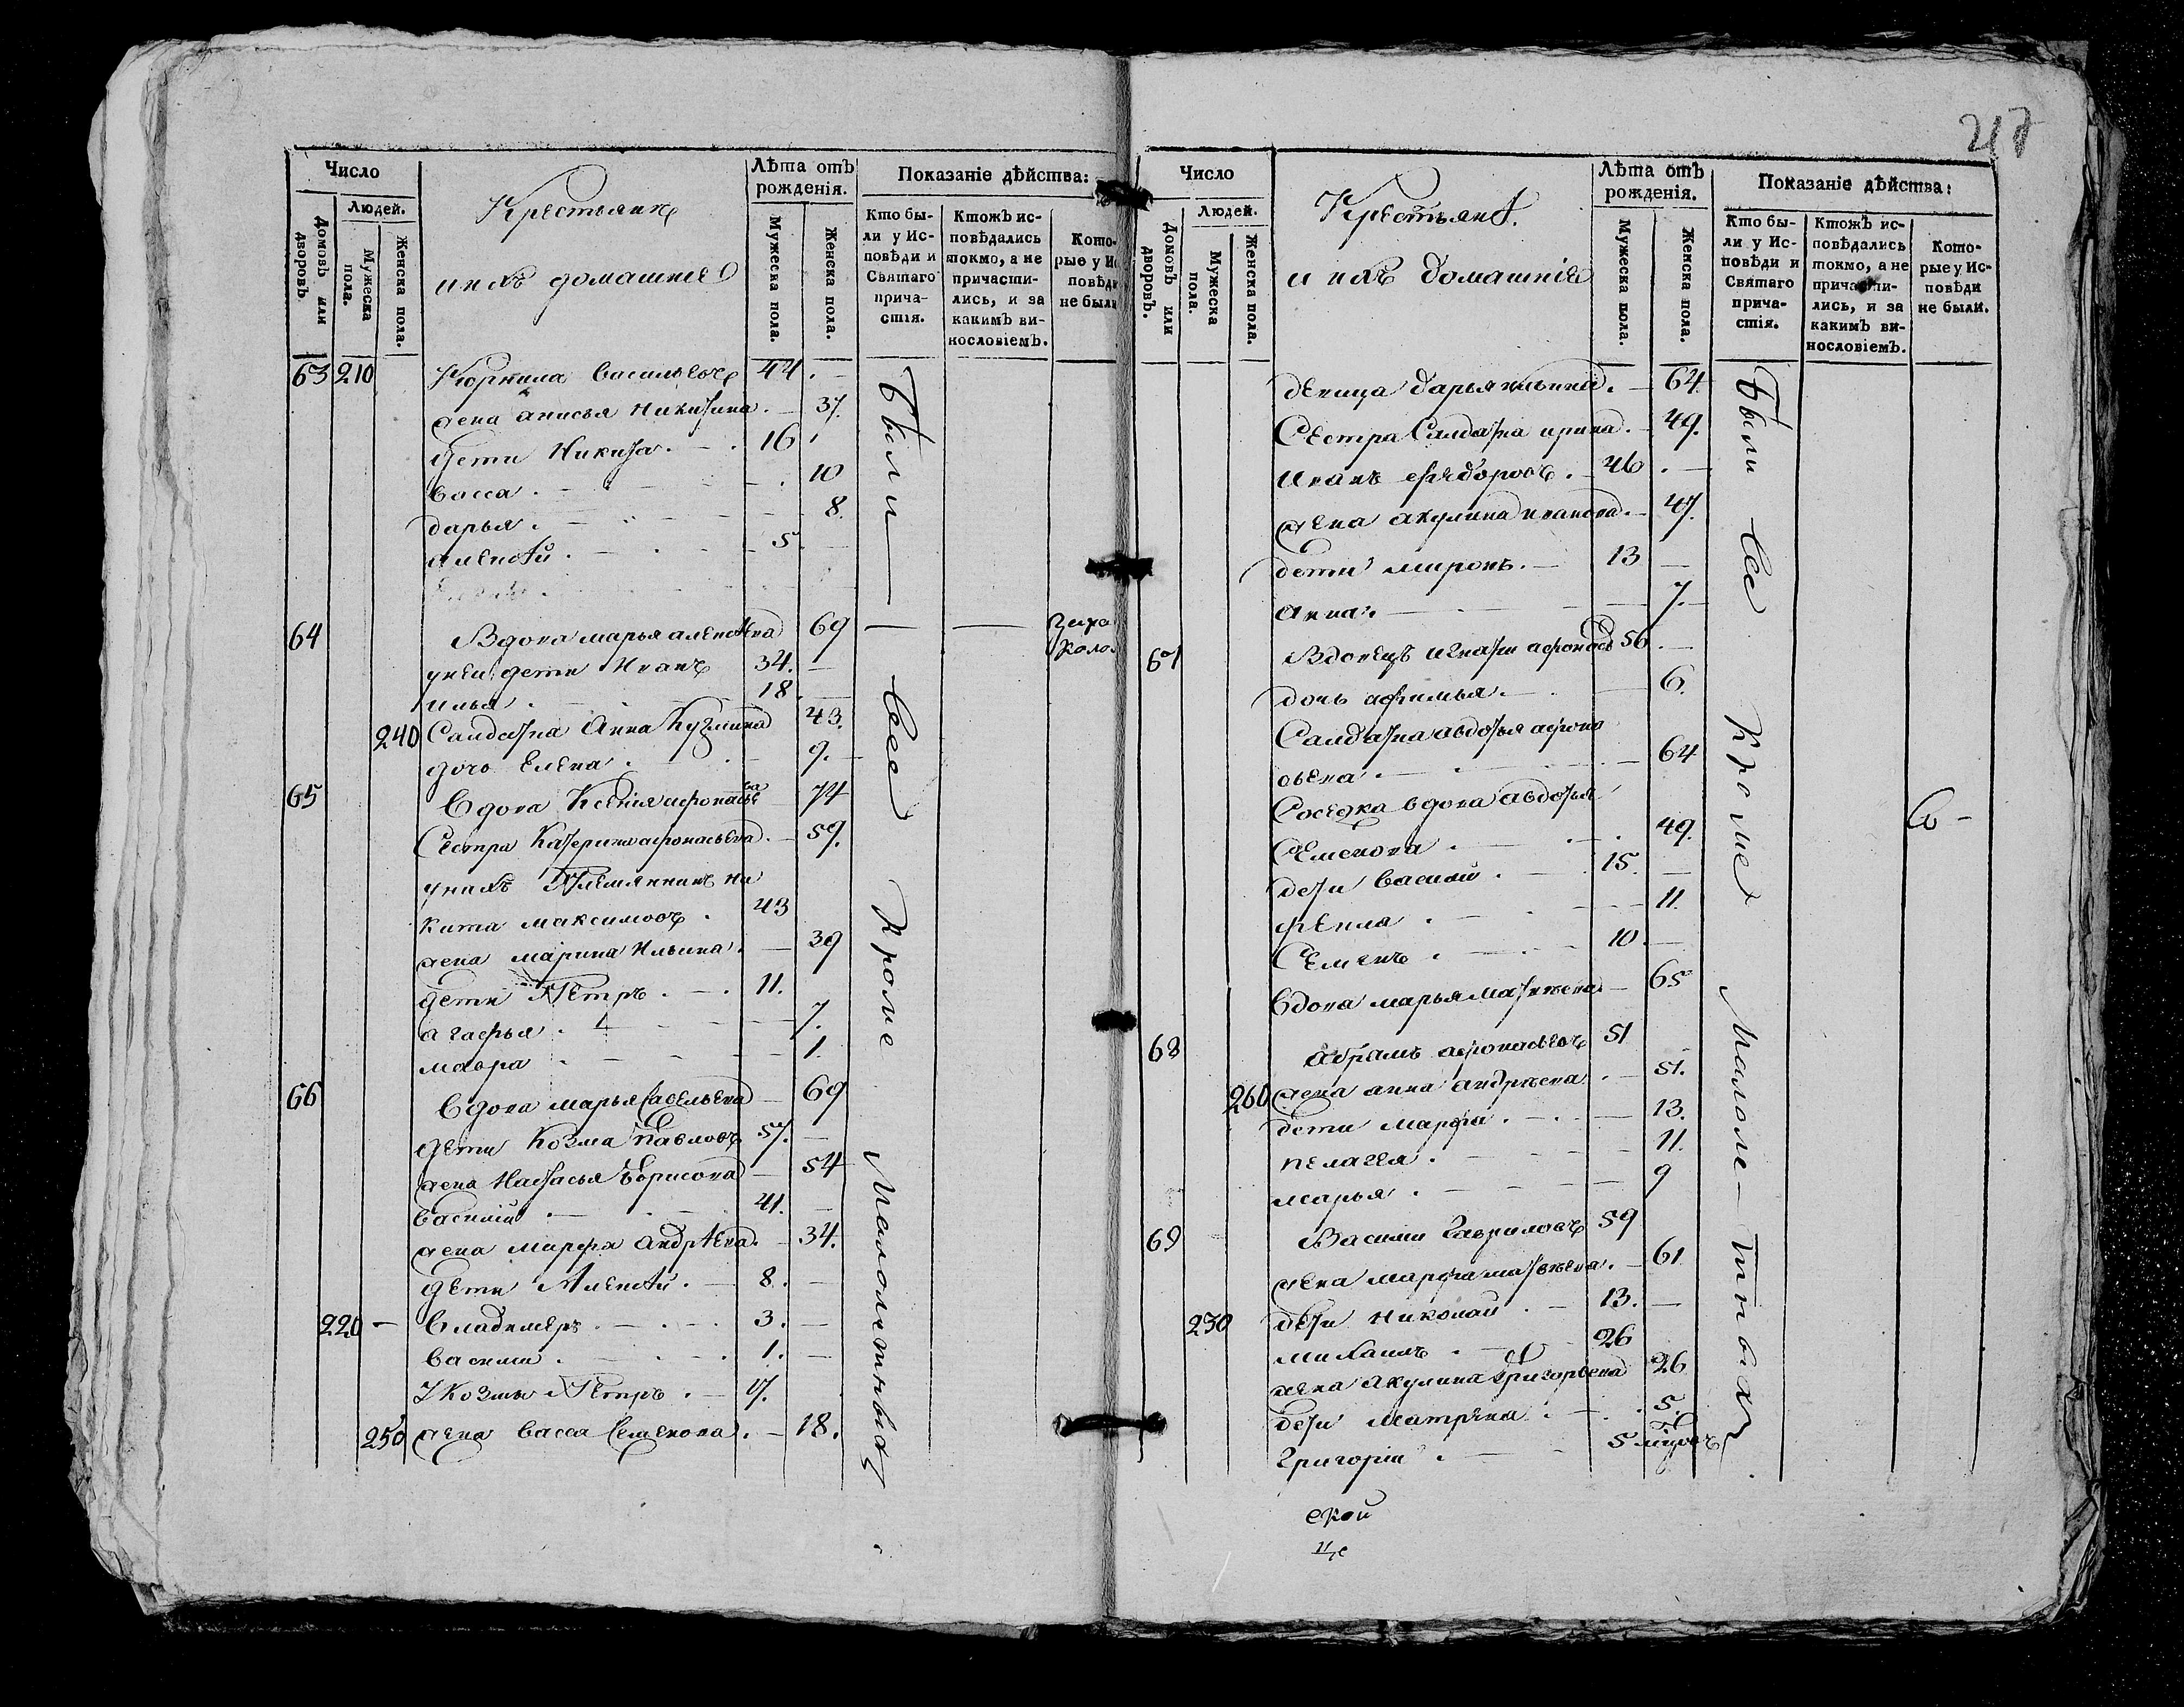 217
Число
Людей.
Домовъ или дворовъ.
Мужеска пола.
Женска пола.
Крестьяне
и ихъ домашние
Лѣта отъ рожденія.
Мужеска пола.
Женска пола.
Показаніе дѣйства:
Кто были у Исповѣди и Святаго причастія.
Ктожъ исповѣдались токмо, а не причастились, и за какимъ винословіемъ.
Кото-
рые у Ис
повѣди
не были
63 210 Васильевъ 44.
жена анисья Никитина. 37.
дети Никита. 16
васса. 10
дарья. 8.
алексѣй. 5
64 Вдова марья алексѣева 69
унеи дети Иванъ 34.
илья 18.
240 Салдатка Анна Кузмина 43.
дочь Елена. 9.
65 Вдова Ксения афонасьева 74
Сестра Катерина афонасьева. 59.
унихъ Племянникъ ни
кита максимовъ. 43
жена марина Ильина. 39
дети Петръ. 11.
агафья. 7.
мавра 1.
66 Вдова марья Савельева 69
дети Козма Павловъ 57.
жена Настасья Борисова 54
василий 41.
жена марфа андрѣева. 34.
дети Алексѣй. 8.
220 Владимеръ 3.
василий. 1.
У Козмы Петръ. 17.
250 жена васса Семенова. 18.
Были все кроме малолетныхъ
Число
Людей.
Домовъ или дворовъ.
Мужеска пола.
Женска пола.
Крестьянѣ.
и ихъ домашнія
Лѣта отъ рожденія.
Мужеска пола.
Женска пола.
Показаніе дѣйства:
Кто были у Исповѣди и Святаго причастія.
Ктожъ исповѣдались токмо, а не причастились, и за какимъ винословіемъ.
Которые у Исповѣди не были.
девица дарья ильина. 64
Сестра Салдатка ирина. 49.
Иванъ федоровъ. 46.
жена акулина иванова. 47.
дети миронъ. 13
анна. 7.
67 Вдовецъ игнатий афонасьевъ 56.
дочь афимья. 6.
Салдатка авдотья афона
сьева. 64
Соседка вдова авдотья
Семенова. 49.
дети василий. 15.
фекла. 11.
Семенъ. 10.
вдова марья матвеева 65
68 абрамъ афонасьевъ 51
260 жена анна андреева. 51.
дети марфа. 13.
пелагея. 11.
марья. 9
69 Василий Гавриловъ 59
жена марфа матвеева. 61
230 дети николай. 13.
михаилъ. 26
жена акулина григорьева 26
дети матрена. 5.
григорий. 5
Были все кроме малолетныхъ